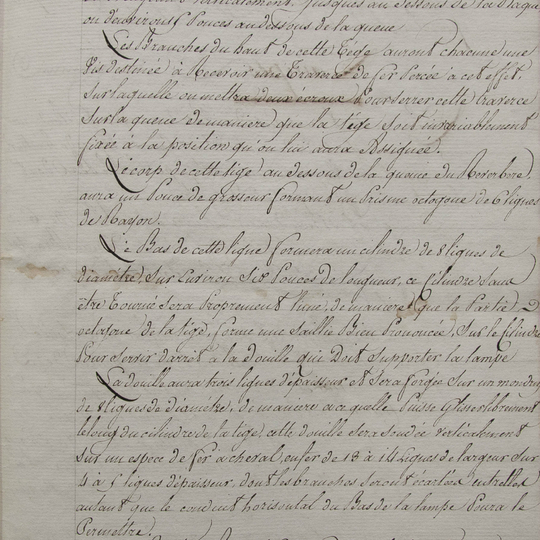 jusques au dessous de la plaque
ou d'environ 5 pouces au dessous de la queue
Les Branches du haut de cette tige auront chacune une
Vis destinée à Recevoir une traverse de fer Percée à cet effet,
Sur laquelle on mettra deux écroux Pour serrer cette traverse
Sur la queue de maniere que la tige soit invariablement
fixée à la position qu'on lui aura Assignée.
Le corp de cette tige au dessous de la queue du Reverbere,
aura un Pouce de grosseur formant un Prisme octogone de 6 lignes
de Rayon.
Le Bas de cette tige formera un cilindre de 8 lignes de
diamétre, Sur Environ Six Pouces de longueur, ce Cilindre Sans
être tourné Sera Proprement limé, de maniere que la Partie
octogone de la tige, forme une Saillie Bien Prononcée, Sur le Cilindre
Pour Servir d'arrêt à la douille que Doit Supporter la lampe
La douille aura trois lignes d'épaisseur et Sera forgée Sur un mondrin
de 8 lignes de diamétre, de maniere à ce quelle Puisse Glisser librement
le long du cilindre de la tige, cette douille Sera soudée Verticalement
Sur un espece de fer à cheval, en fer de 13 à 14 Lignes de largeur Sur
4 à 5 lignes dépaisseur, dont les branches Seront écartées entrelles
autant que le conduit horisontal du Bas de la lampe Poura le
Permettre.